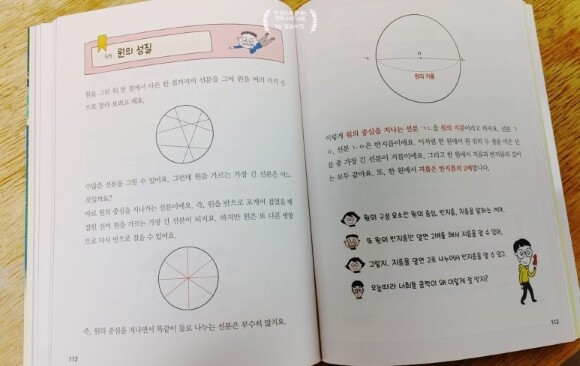 원의 성질
원을 그린 뒤 한 점에서 다른 한 점까지의 선분을 그어 원을 여러 가지 선
으로 잘라 보려고 해요.
수많은 선분을 그릴 수 있어요. 그런데 원을 가르는 가장 긴 선분은 어느
것일까요?
바로 원의 중심을 지나가는 선분이에요. 즉, 원을 반으로 포개어 접었을 때
접힌 선이 원을 가르는 가장 긴 선분이 되지요. 하지만 원은 또 다른 방향
으로 다시 반으로 접을 수 있어요.
즉, 원의 중심을 지나면서 똑같이 둘로 나누는 선분은 무수히 많지요.
112
ㄱ
ㅇ
ㄴ
원의 지름
이렇게 원의 중심을 지나는 선분 ㄱㄴ을 원의 지름이라고 하지요. 선분 ㄱ
ㅇ, 선분 ㄴㅇ은 반지름이에요. 이처럼 한 원에서 원 위의 두 점을 이은 선
분 중 가장 긴 선분이 지름이에요. 그리고 한 원에서 지름과 반지름의 길이
는 모두 같아요. 또, 한 원에서 지름은 반지름의 2배랍니다.
원의 구성 요소란 원의 중심, 반지름, 지름을 말하는 거야.
또 원의 반지름만 알면 2배를 해서 지름을 알 수 있어.
그렇지, 지름을 알면 2로 나누어서 반지름을 알 수 있고.
오늘따라 너희들 궁짝이 왜 이렇게 잘 맞지?
113